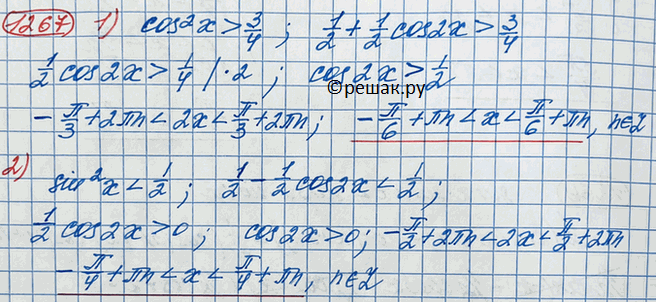 1267 1) cos²x > 3/4 ; 1/2 + 1/2 cos2x > 3/4
1/2 cos2x > 1/4 | · 2 ; cos2x > 1/2
©решак.ру
-π/3 + 2πn < 2x < π/3 + 2πn ; -π/6 + πn < x < π/6 + πn, n∈Z
2) sin²x < 1/2 ; 1/2 - 1/2 cos2x < 1/2 ;
1/2 cos2x > 0 ; cos2x > 0 ; -π/2 + 2πn < 2x < π/2 + 2πn
-π/4 + πn < x < π/4 + πn, n∈Z